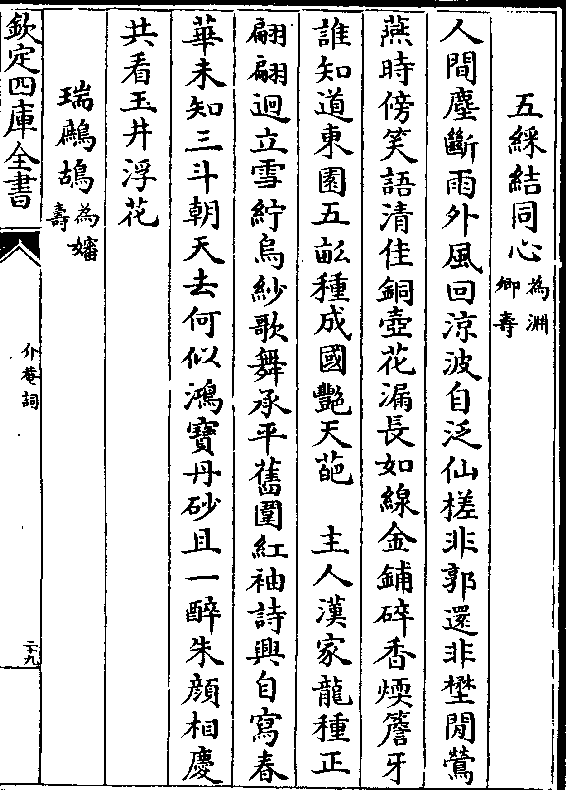 五綵結同心為淵卿壽
人間塵斷雨外風回涼波自泛仙槎非郭還非埜閒鶯
燕時傍笑語清佳銅壺花漏長如線金鋪碎香煗簷牙
誰知道東園五畝種成國艷天葩　主人漢家龍種正
翩翩迥立雪紵烏紗歌舞承平舊圍紅袖詩興自寫春
華未知三斗朝天去何似鴻寶丹砂且一醉朱顔相慶
共看玉井浮花
瑞鷓鴣為嬸壽
欽定四庫全書
介菴詞
二十九